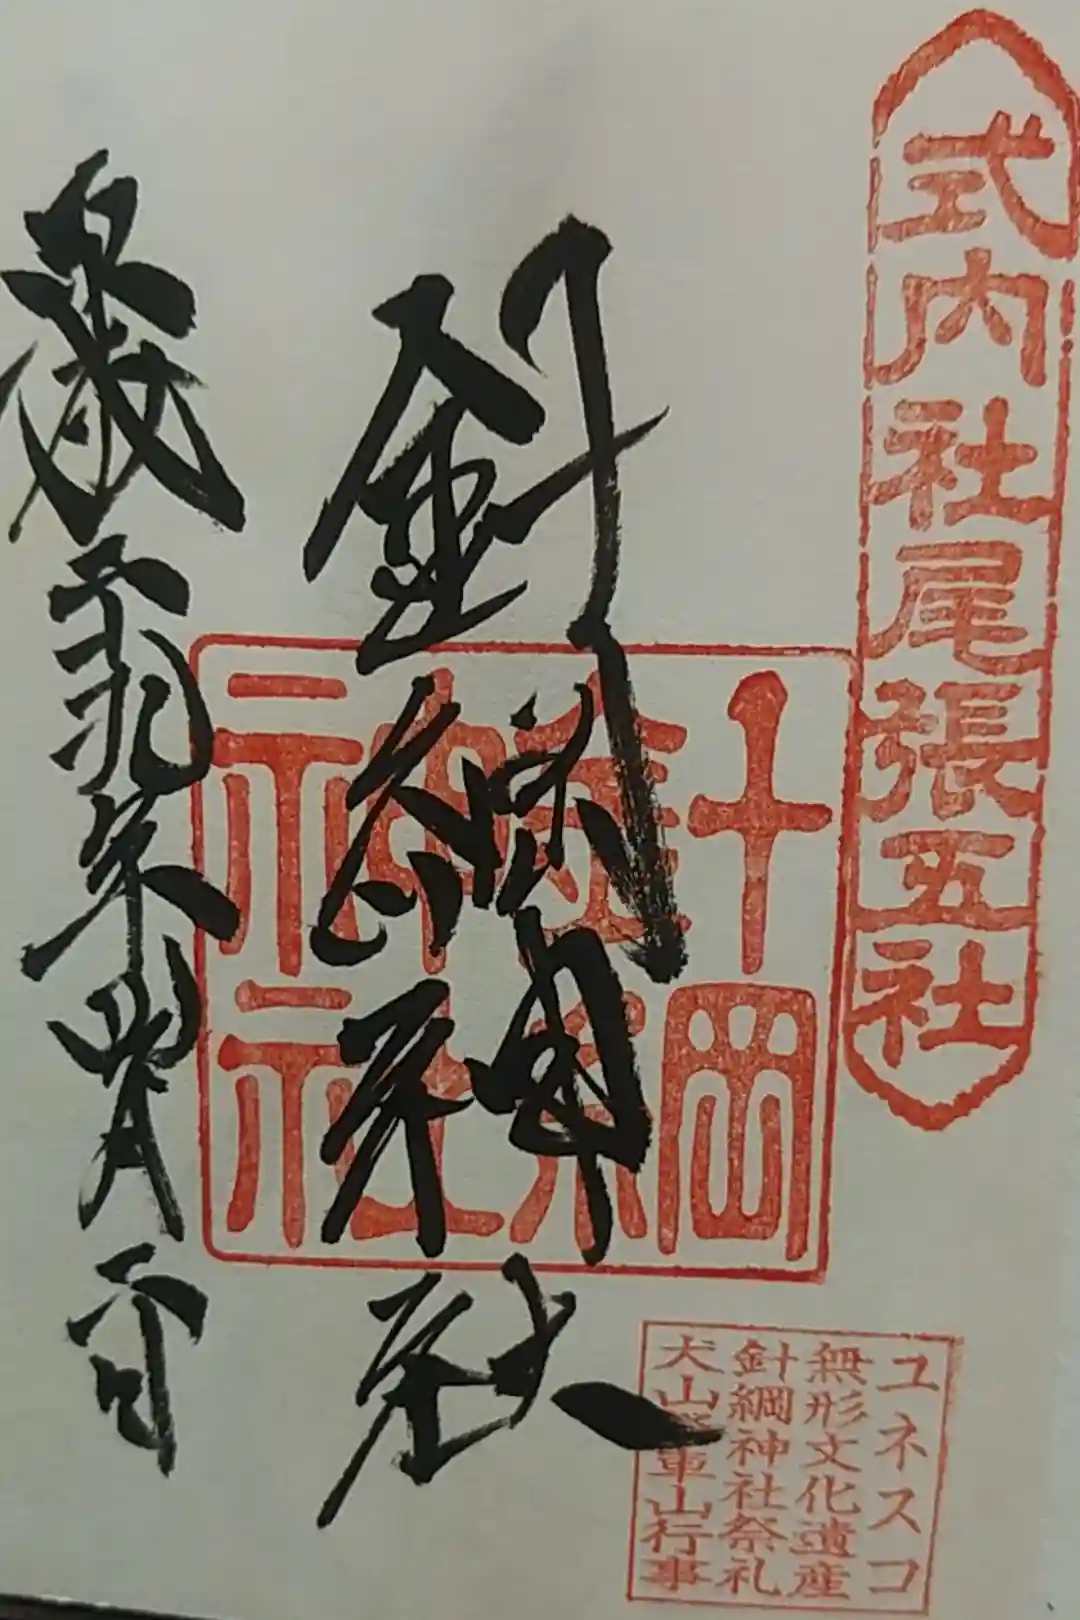 式内社尾張五社
針綱神社
針綱神社
ユネスコ
無形文化遺産
針綱神社祭礼
犬山 車山行事